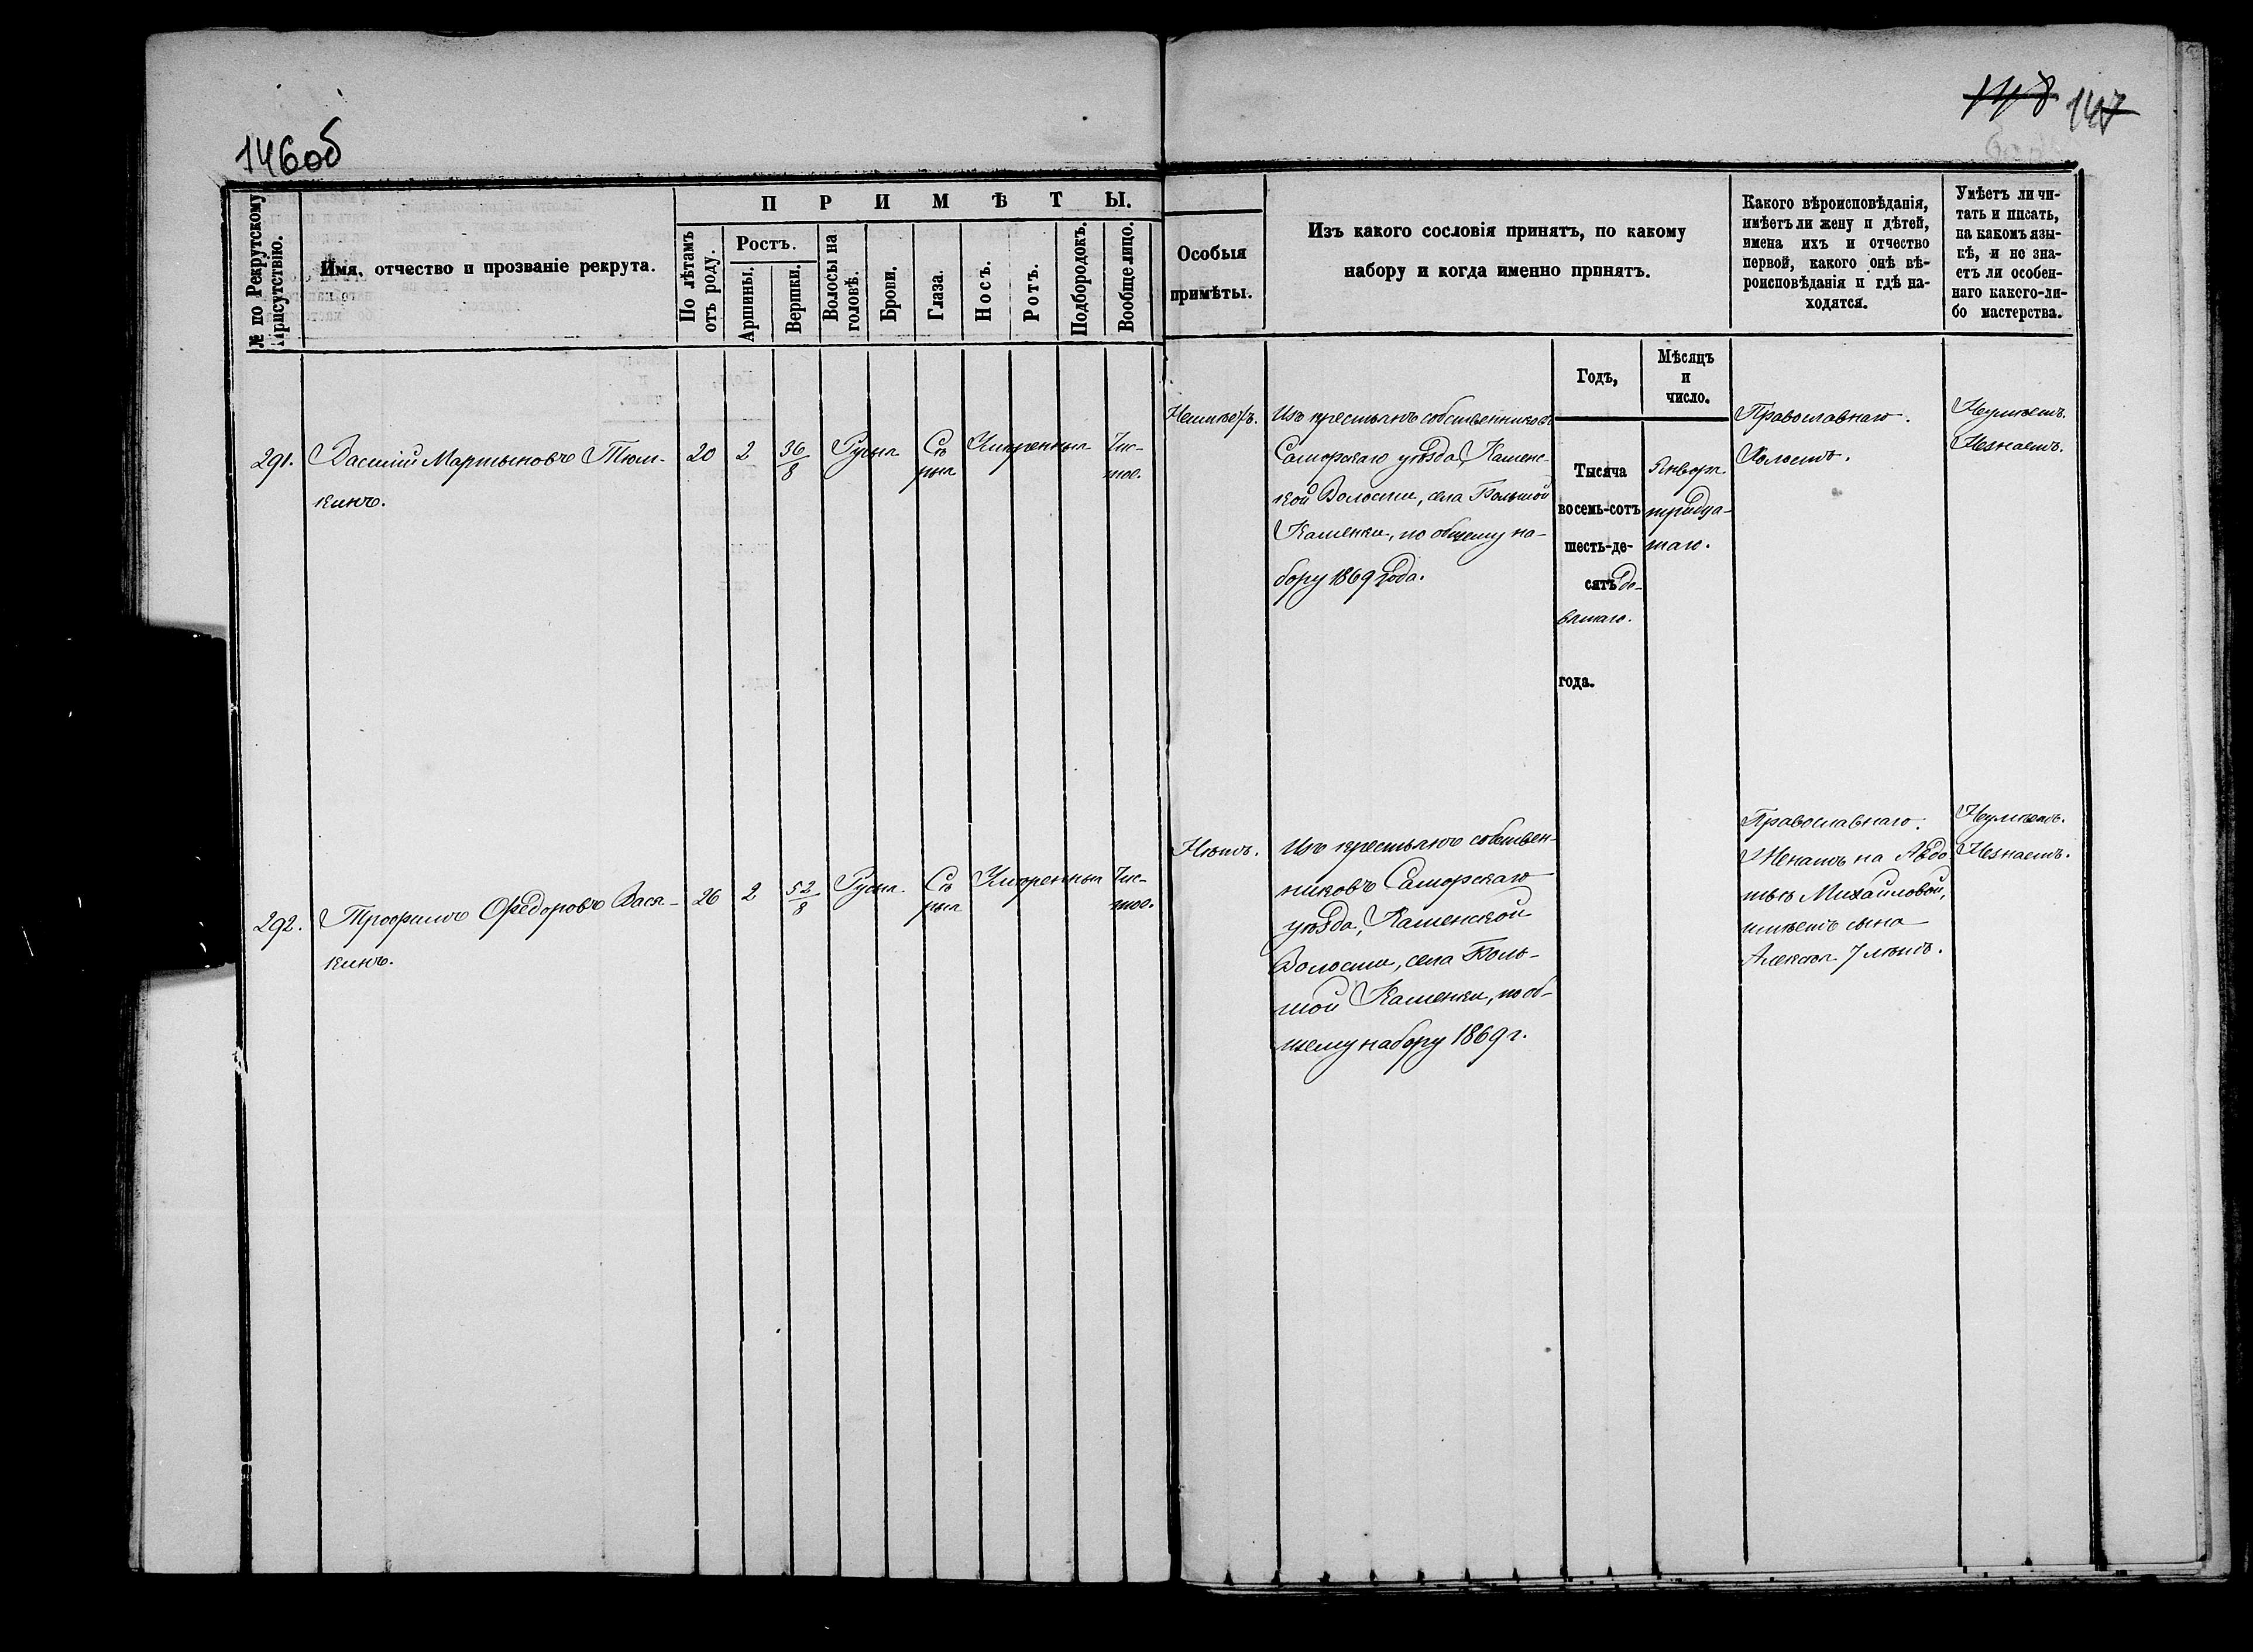 146об
148 147
№ по Рекрутскому Присутствію.
Имя, отчество и прозваніе рекрута.
ПРИМѢТЫ.
По лѣтамъ отъ роду.
Ростъ.
Аршины.
Вершки.
Волосы на головѣ.
Брови.
Глаза.
Носъ.
Ротъ.
Подбородокъ.
Вообще лицо.
Особыя
примѣты.
Изъ какого сословія принятъ, по какому
набору и когда именно принятъ.
Какого вѣроисповѣданія,
имѣетъ ли жену и дѣтей,
имена ихъ и отчество
первой, какого онѣ вѣ-
роисповѣданія и гдѣ на-
ходятся.
Умѣетъ ли чи-
тать и писать,
на какомъ язы-
кѣ, и не зна-
етъ ли особен-
наго какого-ли-
бо мастерства.
Годъ,
Мѣсяцъ
и
число.
291. Василій Мартыновъ Тюм-
кинъ.
20 2 36/8 Русыя Сѣ
рыя
Умѣренныя Чис-
тое.
Изъ крестьянъ собственниковъ
Самарскаго уѣзда, Каменс-
кой Волости, села Большой
Каменки, по общему на-
бору 1869 года.
Тысяча
восемь-сотъ
шесть-де-
сятъ де-
вятаго.
года.
Января
тридца-
таго.
Православнаго.
Холостъ.
Неумѣетъ.
Незнаетъ.
292. Трофимъ Ѳедоровъ Вася-
кинъ.
26 2 52/8 Русыя. Сѣ
рыя
Умѣренныя Чис-
тое.
Нѣтъ.
Изъ крестьянъ собствен-
никовъ Самарскаго
уѣзда, Каменской
Волости, села Боль-
шой Каменки, по об-
щему набору 1869 г.
Православнаго.
Женатъ на Авдо-
тьѣ Михайловой,
имѣетъ сына
Алексѣя 7 лѣтъ.
Неумѣетъ.
Незнаетъ.